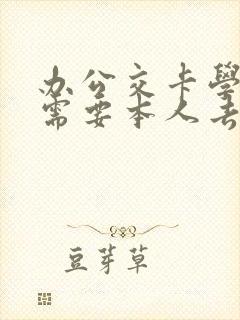 办公交卡學
需要本人去
豆芽草